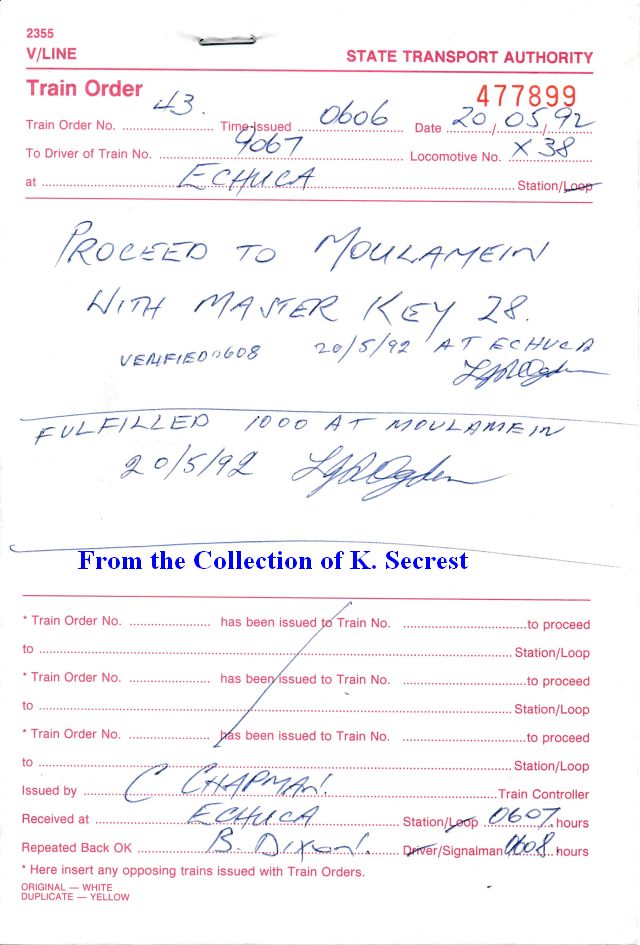 2355
V/LINE STATE TRANSPORT AUTHORITY
Train Order 477899
Train Order No. 43. Time Issued 0606 Date 20/05/92
To Driver of Train No. 9067 Locomotive No. X 38
at ECHUCA Station/Loop
PROCEED TO MOULAMEIN
WITH MASTER KEY 28.
VERIFIED 0608 20/5/92 AT ECHUCA
Ogden
FULFILLED 1000 AT MOULAMEIN
20/5/92 Ogden
From the Collection of K. Secrest
* Train Order No. .................... has been issued to Train No. ....................to proceed
to ....................Station/Loop
* Train Order No. .................... has been issued to Train No. ....................to proceed
to ....................Station/Loop
* Train Order No. .................... has been issued to Train No. ....................to proceed
to ....................Station/Loop
Issued by C CHAPMAN. Train Controller
Received at ECHUCA Station/Loop 0607 hours
Repeated Back OK B. Dixon. Driver/Signalman 0608 hours
* Here insert any opposing trains issued with Train Orders.
ORIGINAL — WHITE
DUPLICATE — YELLOW